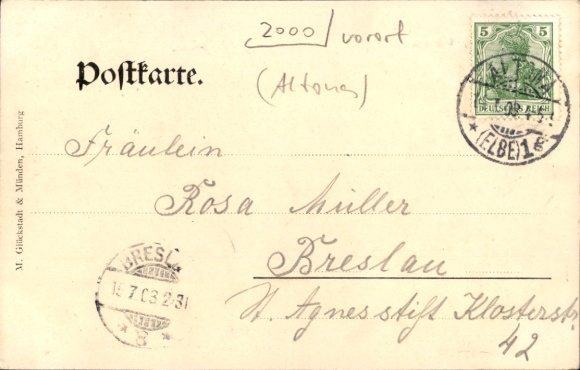 2000 vorort
(Altona)
Postkarte.
5 5
DEUTSCHES REICH
ALTONA
(ELBE) 1
Fräulein
Rosa Müller
Breslau
St. Agnesstift Klosterstr
42
BRESL
15.7.03.2-3
M. Glückstadt & Münden, Hamburg